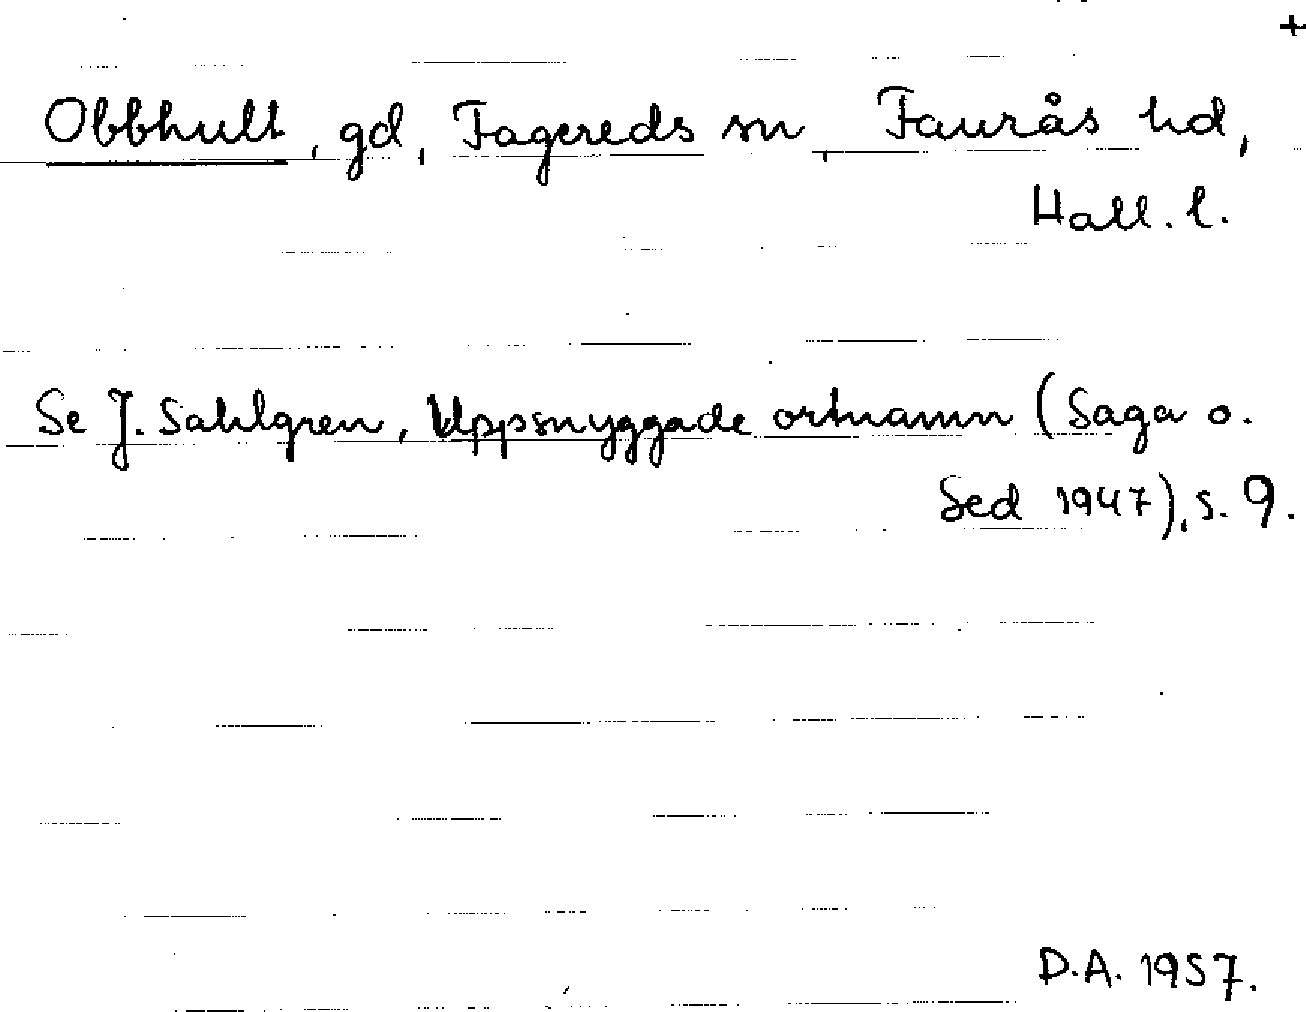 +
Obbhult, gd, Fagereds sn, Faurås hd,
Hall. l.
Se J. Sahlgren, Uppsnyggade ortnamn (Saga o.
Sed 1947), s. 9.
D.A. 1957.